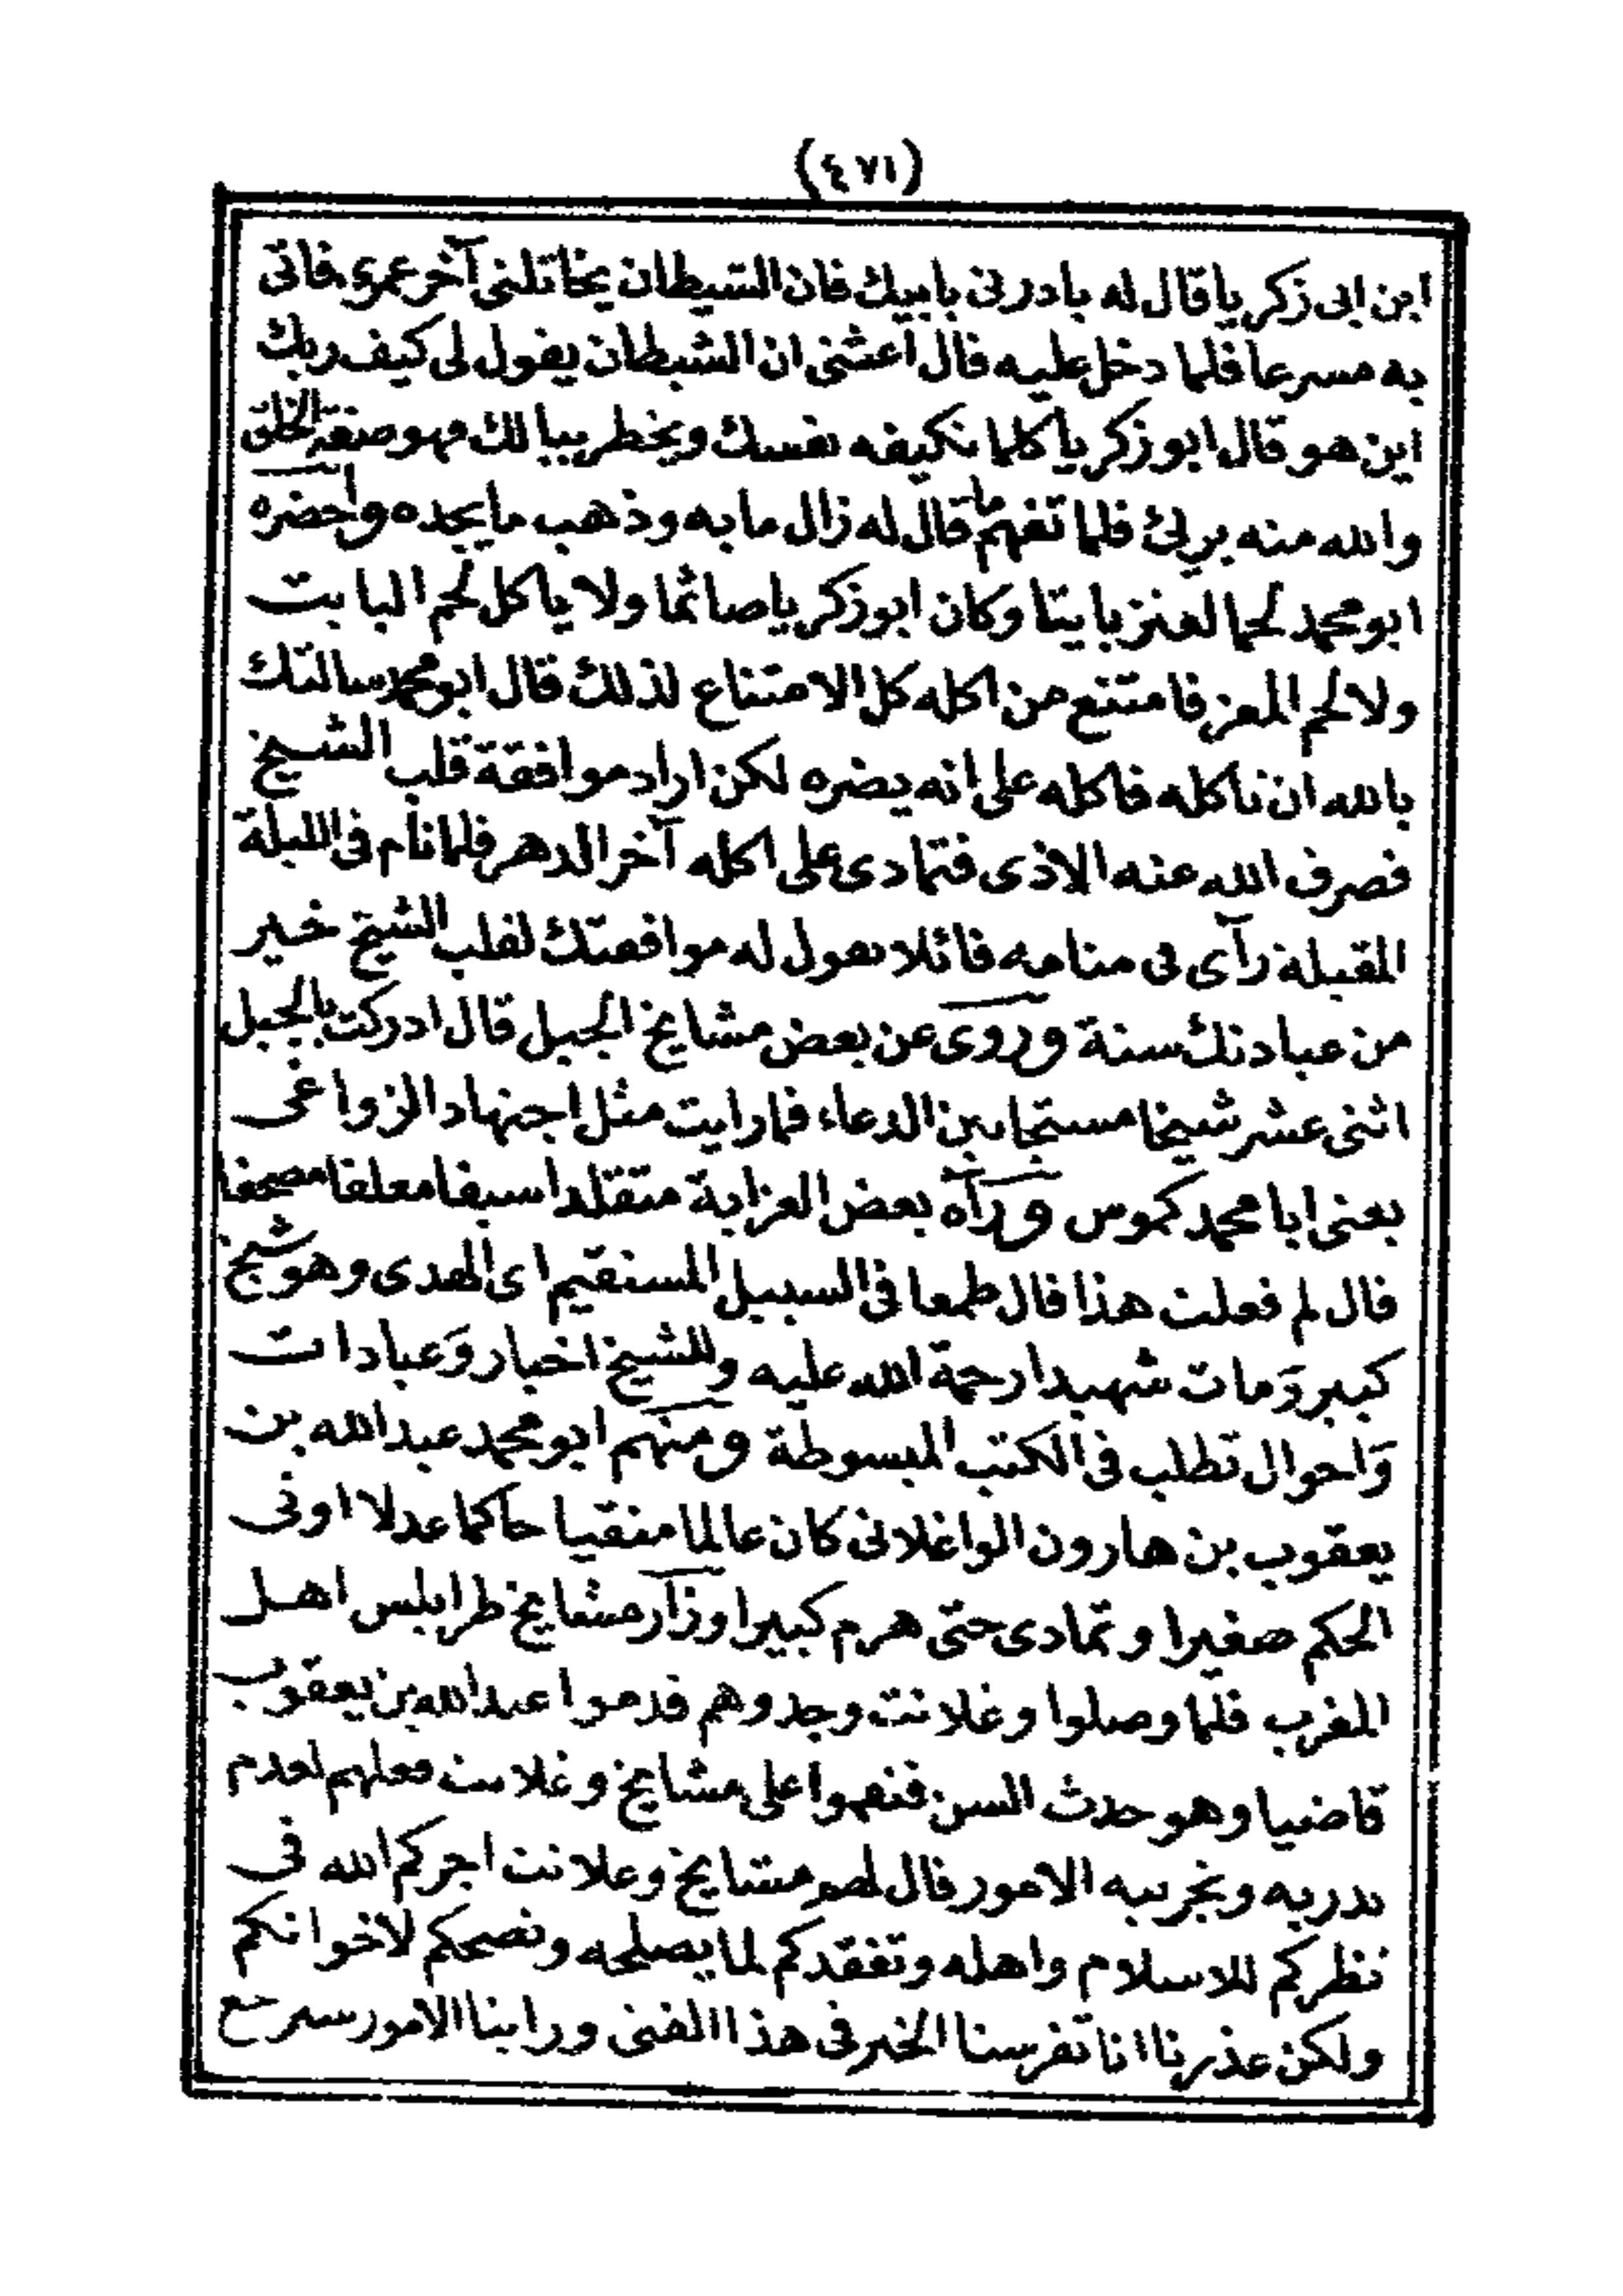 (٤٧١)
ابن ابى زكريا قال له بادرنى بابيك فان الشيطان يخاتلنى آخر عمرى فاتى
به مسرعا فلما دخل عليه قال اغثنى ان الشيطان يقول لى كيف ربك
اين هو قال ابو زكريا كلما تكيفه نفسك ويخطر ببالك فهو صفة الخلق
والله منه برئ فلما تفهم ما قال له زال ما به وذهب ما يجده واحضره
ابو محمد لحما لعنز بايتا وكان ابو زكريا صائما ولا ياكل لحم البايت
ولا لحم المعز فامتنع من اكله كل الامتناع لذلك قال ابو محمد سالتك
بالله ان تاكله فاكله على انه يضره لكن اراد موافقة قلب الشيخ
فصرف الله عنه الاذى فتمادى على اكله آخر الدهر فلما نام فى الليلة
المقبلة رآى فى منامه قائلا يقول له موافقتك لقلب الشيخ خير
من عبادتك سنة وروى عن بعض مشايخ الجبل قال ادركت بالجبل
اثنى عشر شيخا مستجابين الدعاء فما رايت مثل اجتهاد الزواغى
يعنى ابا محمد كموس ورآه بعض العزابة متقلدا سيفا معلقا مصحفا
قال لم فعلت هذا قال طمعا فى السبيل المستقيم اى الهدى وهو شيخ
كبير وَمات شهيدا رحمة الله عليه وللشيخ اخبار وَعبادات
وَاحوال تطلب فى الكتب المبسوطة ومنهم ابو محمد عبد الله بن
يعقوب بن هارون الواغلانى كان عالما متقيا حاكما عدلا اوتى
الحكم صغيرا وتمادى حتى هرم كبيرا وزار مشايخ طرابلس اهل
المغرب فلما وصلوا وغلانت وجدوهم قدموا عبد الله بن يعقوب
قاضيا وهو حدث السن فنقموا على مشايخ وغلانت فعلهم لعدم
تدريه وتجريبه الامور قال لهم مشايخ وغلانت اجركم الله فى
نظركم للاسلام واهله وتفقدكم لما يصلحه ونصحكم لاخوانكم
ولكن عذرنا انا تفرسنا الخير فى هذا الفتى وراينا الامور سرع